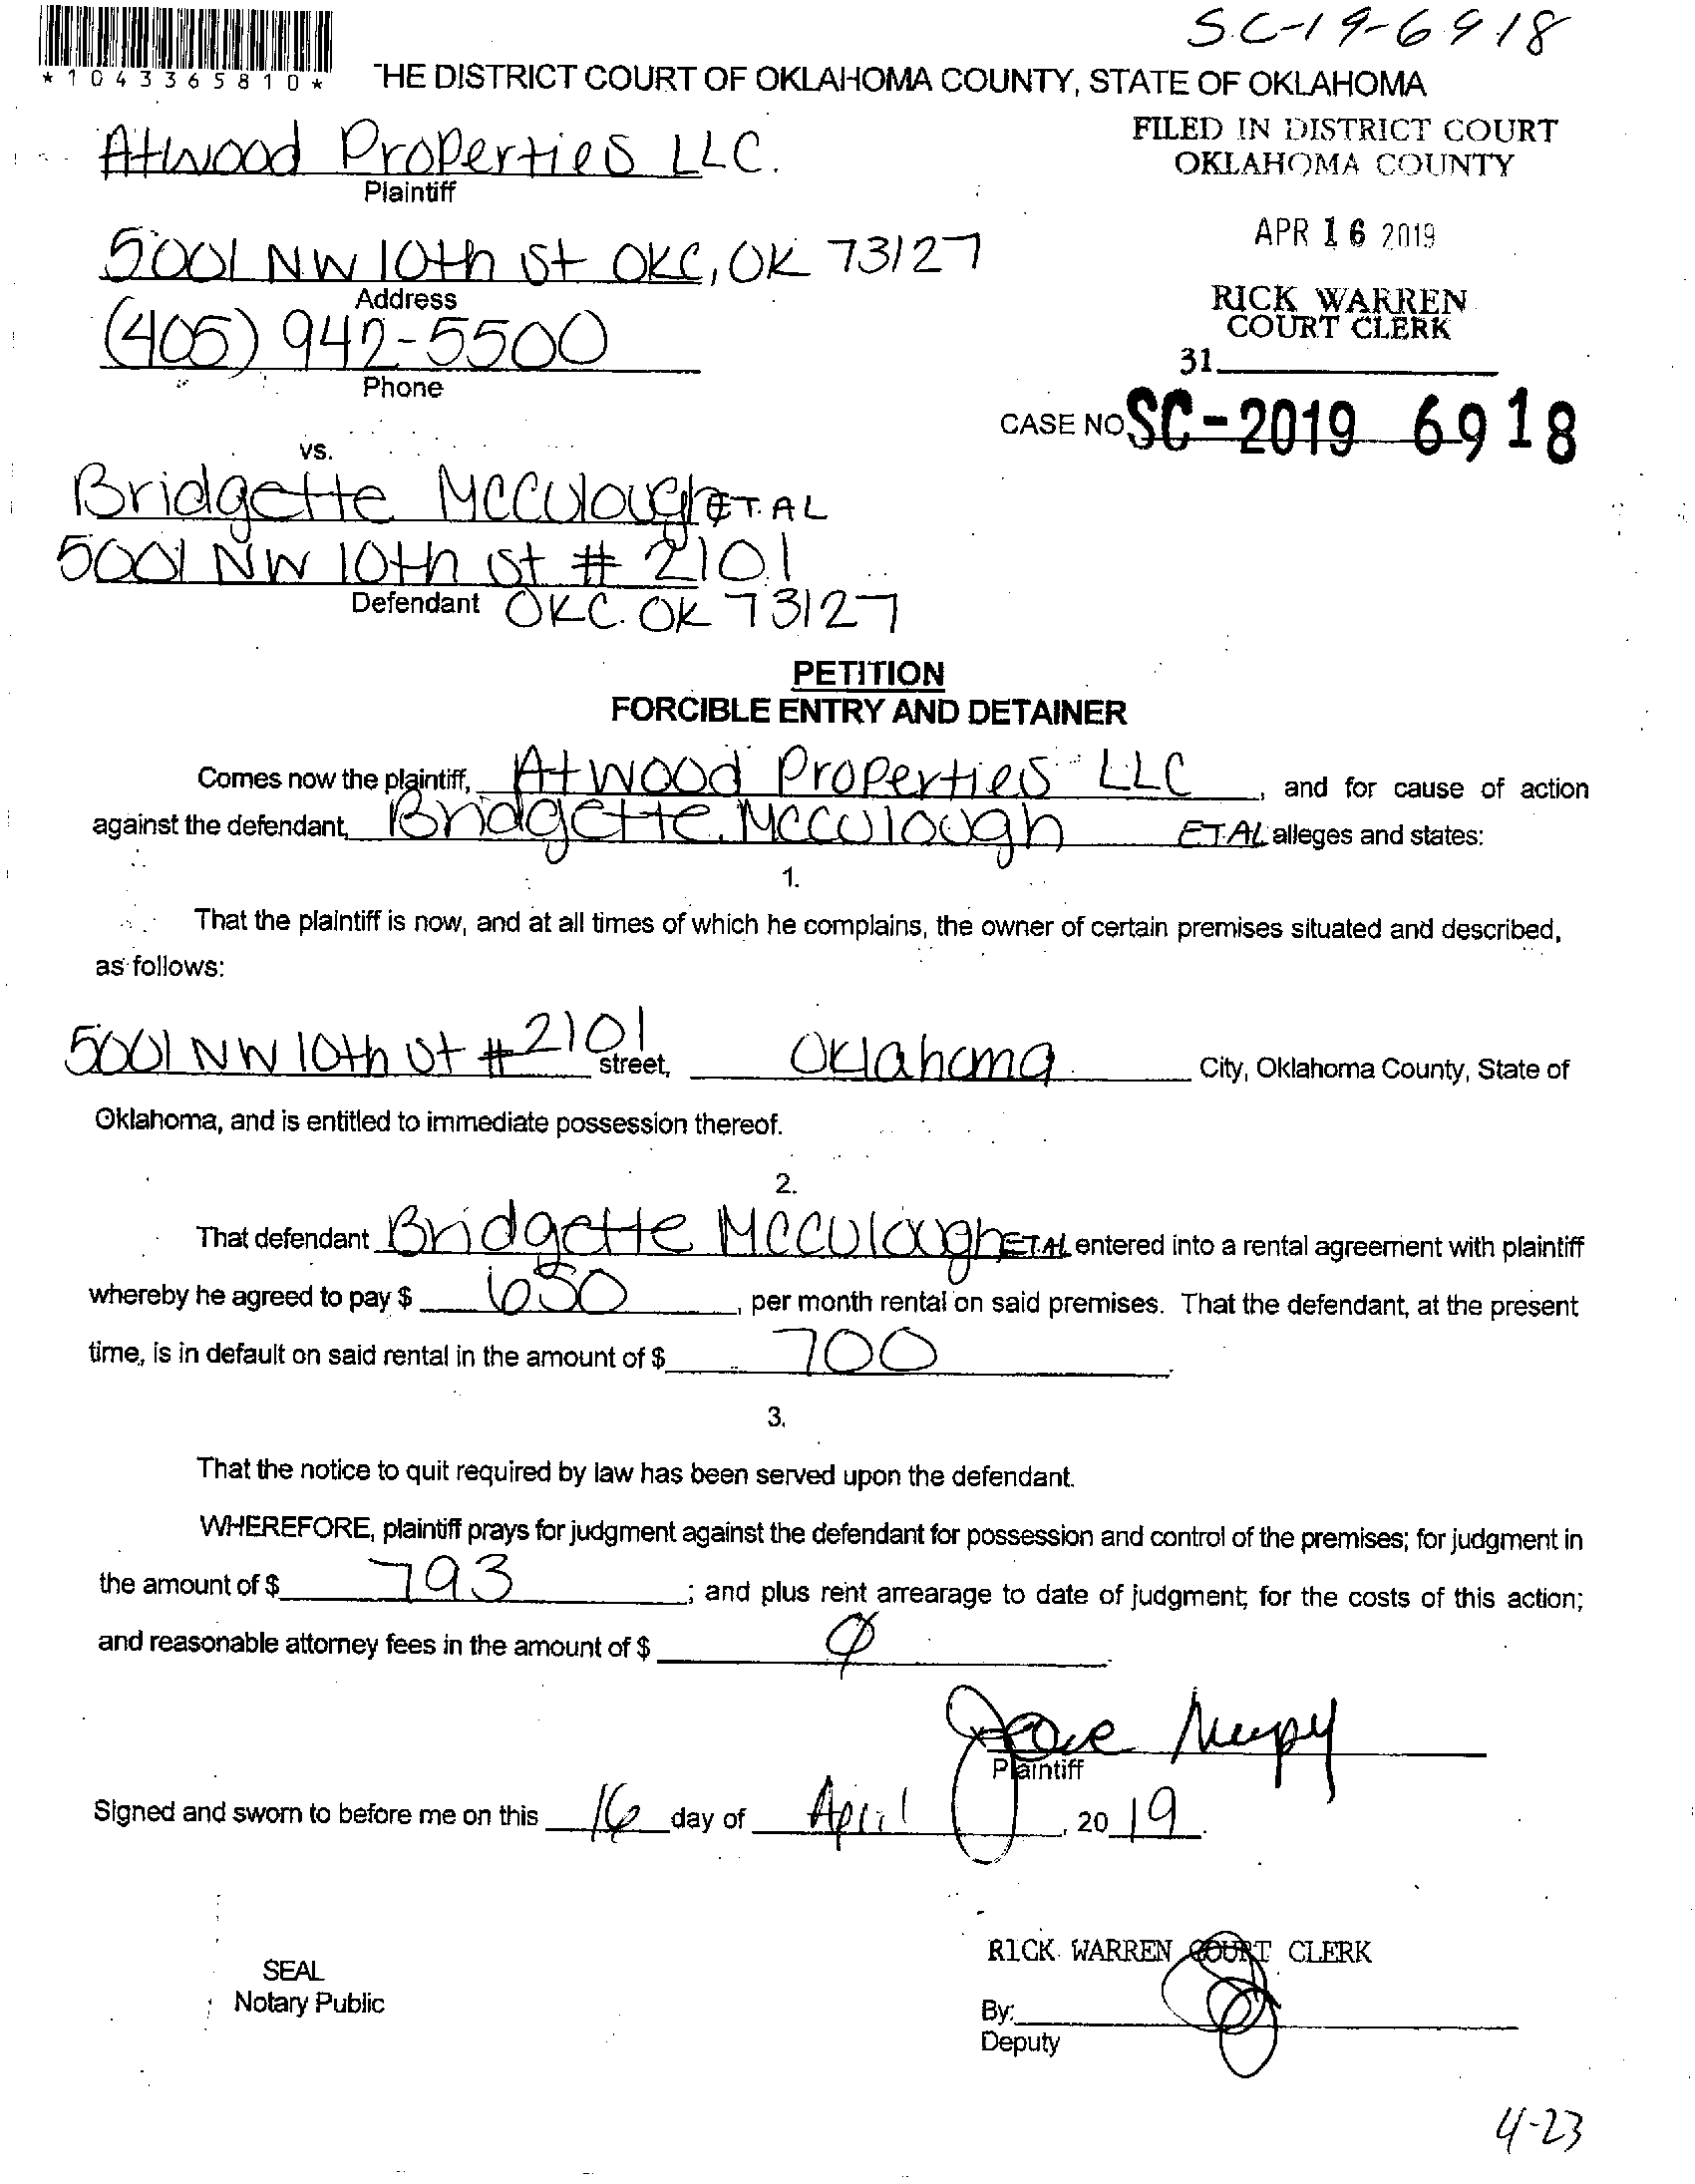 SC-19-6918
*1043365810*
THE DISTRICT COURT OF OKLAHOMA COUNTY, STATE OF OKLAHOMA
FILED IN DISTRICT COURT
OKLAHOMA COUNTY
Atwood Properties LLC.
Plaintiff
APR 16 2019
5001 NW 10th St OKC, OK 73127
Address
RICK WARREN
COURT CLERK
(405) 942-5500
Phone
31
CASE NO SC-2019 6918
vs.
Bridgette McCulough ET.AL
5001 NW 10th St # 2101
Defendant OKC. OK 73127
PETITION
FORCIBLE ENTRY AND DETAINER
Comes now the plaintiff, Atwood Properties LLC, and for cause of action
against the defendant, Bridgette McCulough ET.AL alleges and states:
1.
That the plaintiff is now, and at all times of which he complains, the owner of certain premises situated and described,
as follows:
5001 NW 10th St # 2101 street, Oklahoma City, Oklahoma County, State of
Oklahoma, and is entitled to immediate possession thereof.
2.
That defendant Bridgette McCulough ET.AL entered into a rental agreement with plaintiff
whereby he agreed to pay $ 650, per month rental on said premises. That the defendant, at the present
time, is in default on said rental in the amount of $ 700.
3.
That the notice to quit required by law has been served upon the defendant.
WHEREFORE, plaintiff prays for judgment against the defendant for possession and control of the premises; for judgment in
the amount of $ 793; and plus rent arrearage to date of judgment; for the costs of this action;
and reasonable attorney fees in the amount of $ 0
Plaintiff
Signed and sworn to before me on this 16 day of April, 2019.
RICK WARREN COURT CLERK
SEAL
Notary Public
By:
Deputy
4-23